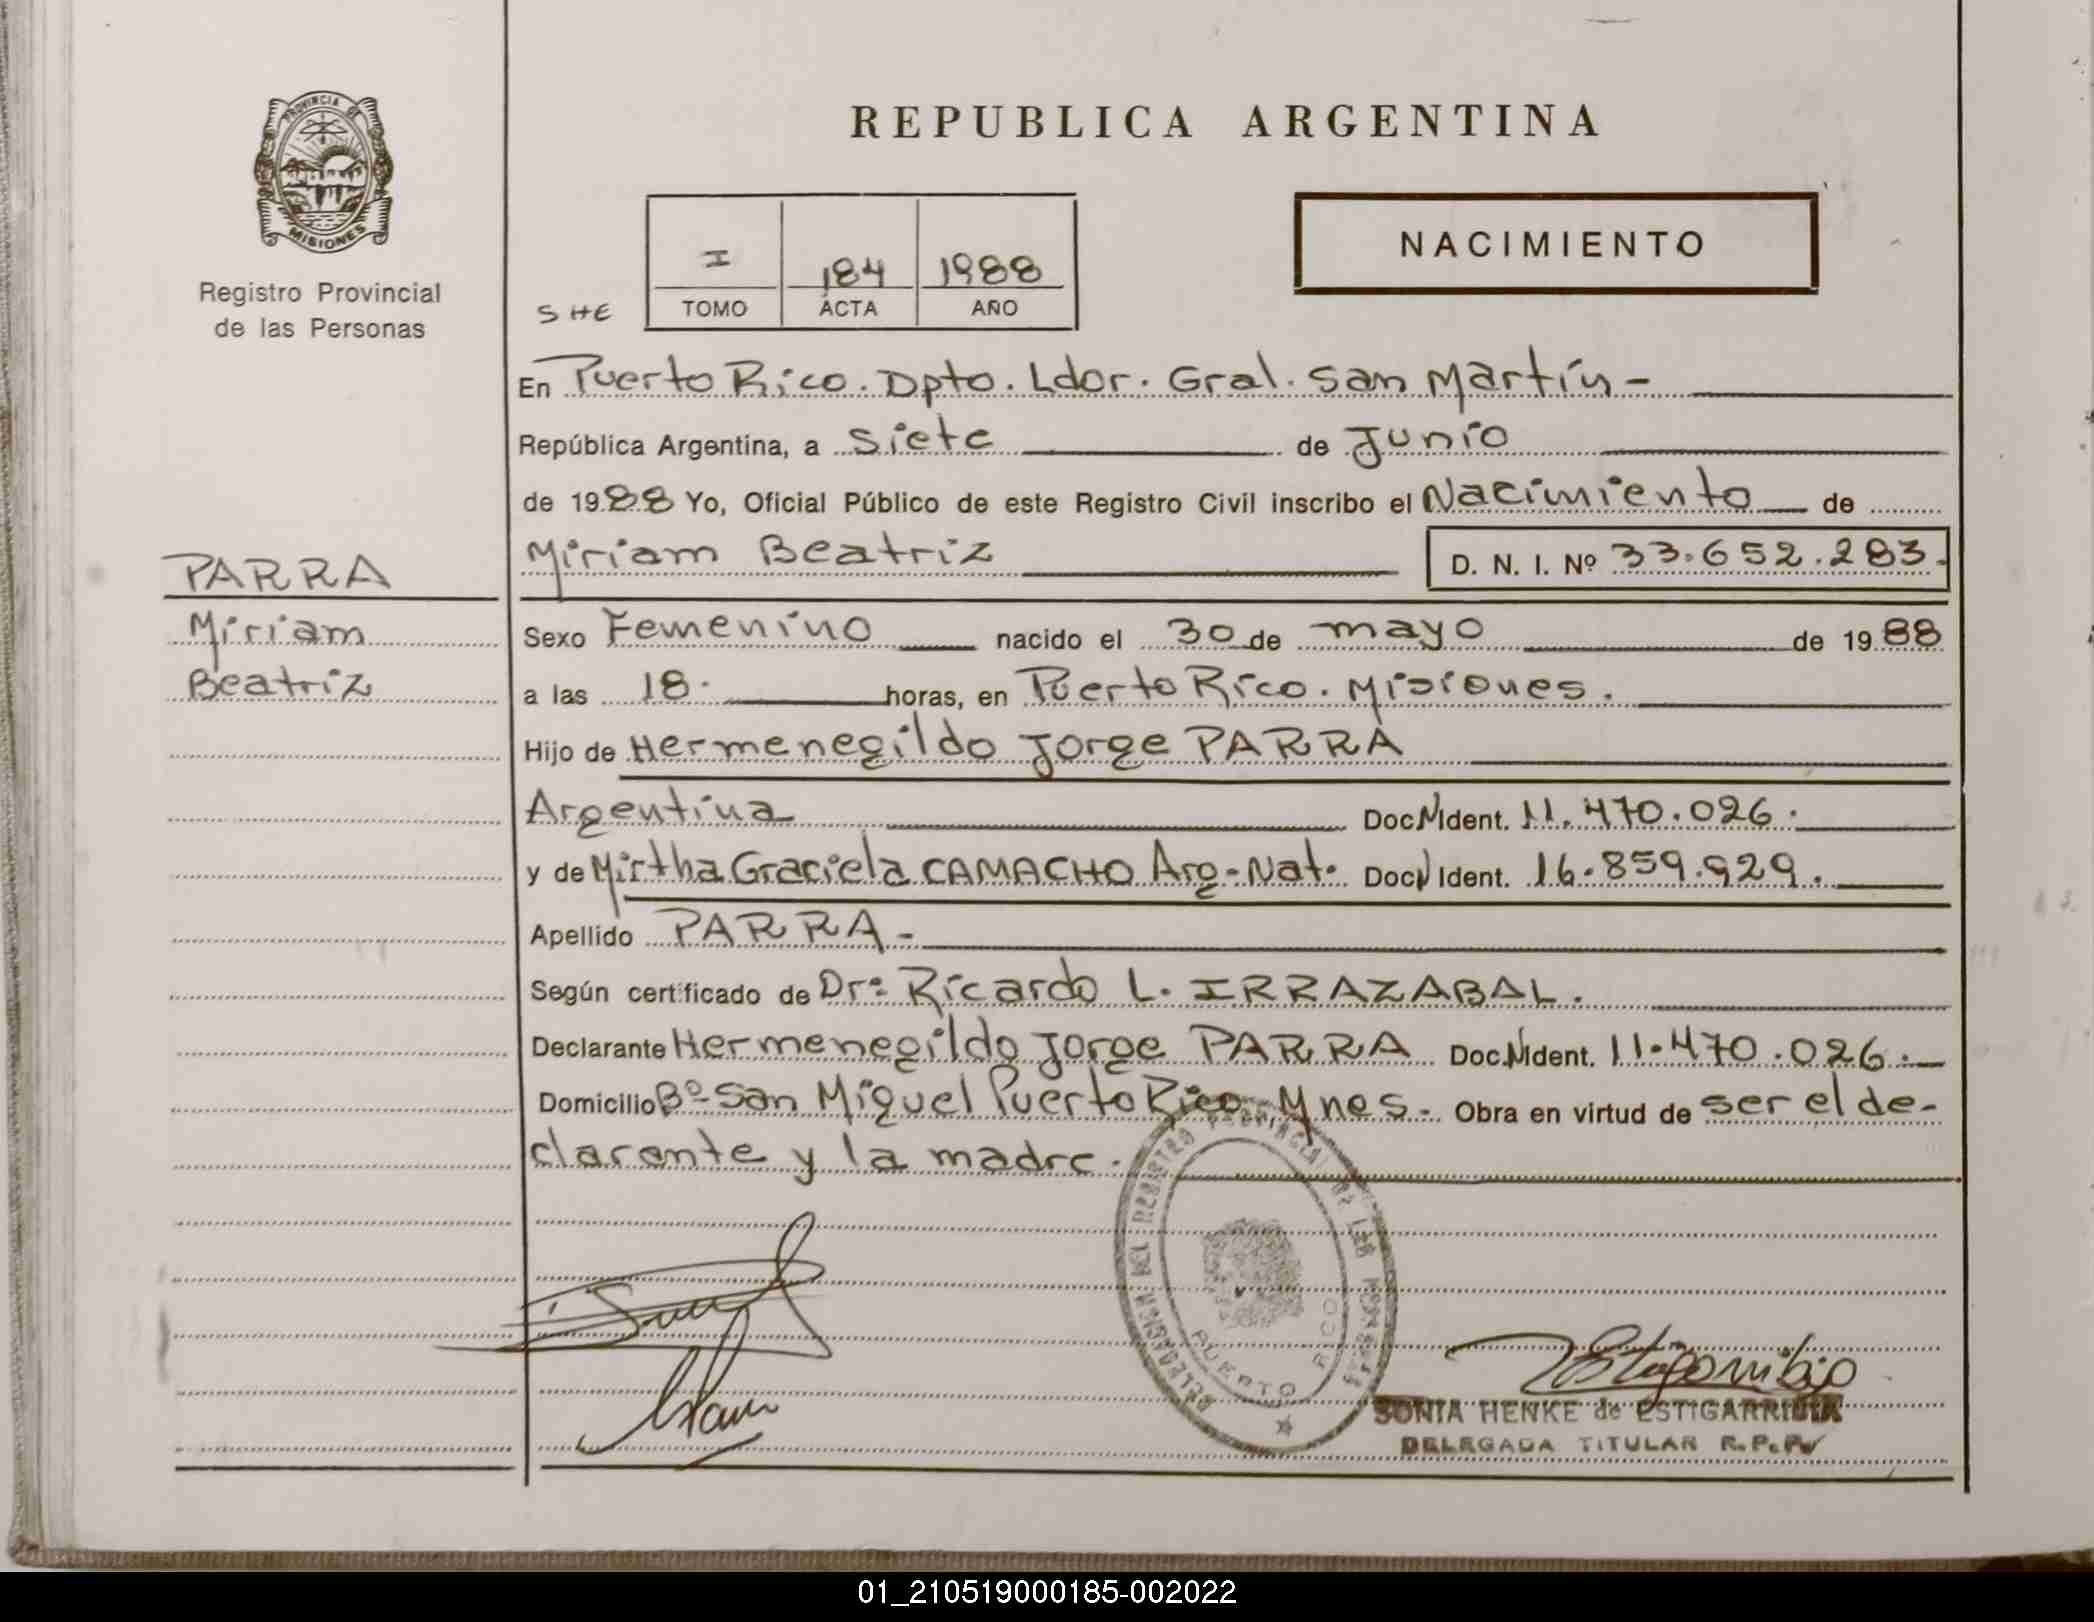 PROVINCIA DE
MISIONES
Registro Provincial
de las Personas
REPUBLICA ARGENTINA
NACIMIENTO
I 184 1988
TOMO ACTA AÑO
SHE
En Puerto Rico. Dpto. Ldor. Gral. San Martín -
República Argentina, a siete de Junio
de 1988 Yo, Oficial Público de este Registro Civil inscribo el Nacimiento de
Miriam Beatriz D. N. I. Nº 33.652.283.
PARRA
Miriam
Beatriz
Sexo Femenino nacido el 30 de mayo de 1988
a las 18. horas, en Puerto Rico. Misiones.
Hijo de Hermenegildo Jorge PARRA
Argentina Doc.N.Ident. 11.470.026.
y de Mirtha Graciela CAMACHO Arg-Nat. Doc.N.Ident. 16.859.929.
Apellido PARRA -
Según certificado de Dr: Ricardo L. IRRAZABAL.
Declarante Hermenegildo Jorge PARRA Doc.N.Ident. 11.470.026.
Domicilio Bº San Miguel Puerto Rico Mnes. Obra en virtud de ser el de-
clarante y la madre.
DELEGACION DEL REGISTRO PROVINCIAL DE LAS PERSONAS
PUERTO RICO
SONIA HENKE de ESTIGARRIBIA
DELEGADA TITULAR R.P.P.
01_210519000185-002022